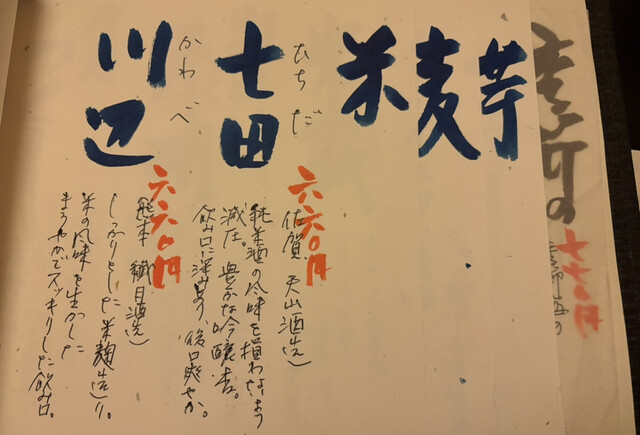 芋
麦
米
七田
ひちだ
六六〇円
佐賀 天山酒造
純米酒の冷味を損わなまう
減圧。豊かな吟醸香。
飲み口に深あり、後口爽やか。
川辺
かわべ
六六〇円
熊本 繊月酒造
しっかりとした米麹造り。
米の風味を生かした
まろやかでスッキリした飲み口。
七七〇円